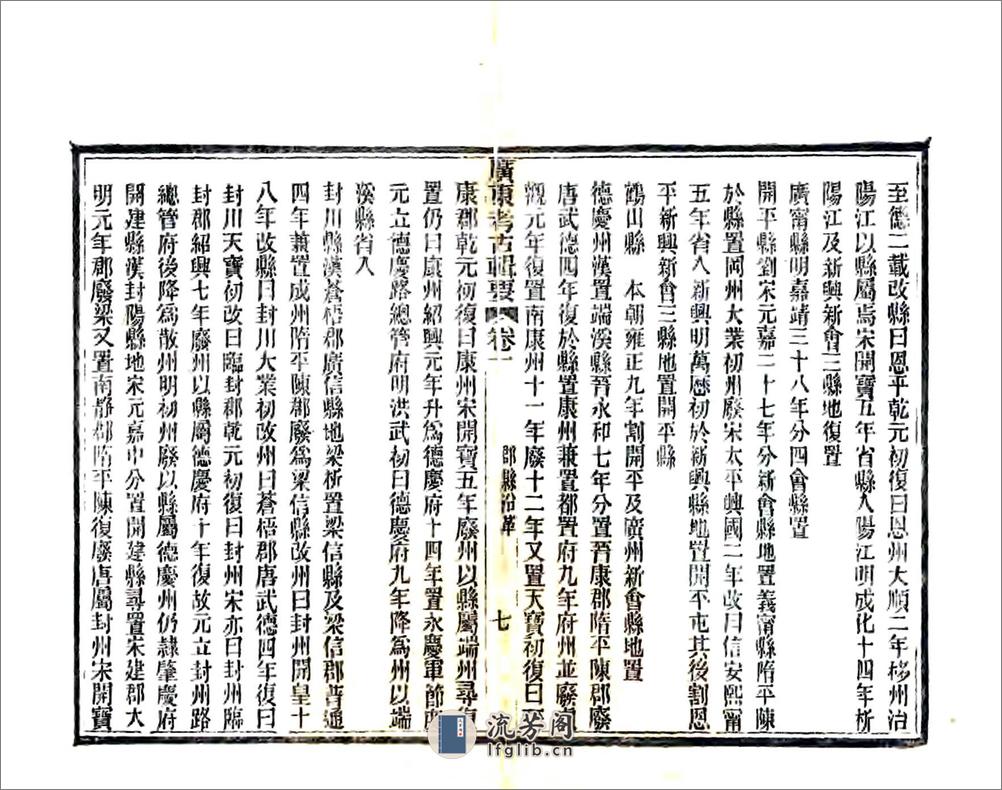 至德二載改縣曰恩平乾元初復曰恩州大順二年移州治
陽江以縣屬焉宋開寶五年省縣入陽江明成化十四年析
陽江及新興新會三縣地復置
廣甯縣明嘉靖三十八年分四會縣置
開平縣劉宋元嘉二十七年分新會縣地置義甯縣隋平陳
於縣置岡州大業初州廢宋太平興國二年改曰信安熙甯
五年省入新興明萬歷初於新興縣地置開平屯其後割恩
平新興新會三縣地置開平縣
鶴山縣 本朝雍正九年割開平及廣州新會縣地置
德慶州漢置端溪縣晉永和七年分置晉康郡隋平陳郡廢
唐武德四年復於縣置康州兼置都置府九年府州並廢貞
觀元年復置南康州十一年廢十二年又置天寶初復曰晉
廣東考古輯要 卷一 郡縣沿革 七
康郡乾元初復曰康州宋開寶五年廢州以縣屬端州尋復
置仍曰康州紹興元年升爲德慶府十四年置永慶軍節度
元立德慶路總管府明洪武初曰德慶府九年降爲州以端
溪縣省入
封川縣漢蒼梧郡廣信縣地梁析置梁信縣及梁信郡普通
四年兼置成州隋平陳郡廢爲梁信縣改州曰封州開皇十
八年改縣曰封川大業初改州曰蒼梧郡唐武德四年復曰
封川天寶初改曰臨封郡乾元初復曰封州宋亦曰封州臨
封郡紹興七年廢州以縣屬德慶府十年復故元立封州路
總管府後降爲散州明初州廢以縣屬德慶州仍隸肇慶府
開建縣漢封陽縣地宋元嘉中分置開建縣尋置宋建郡大
明元年郡廢梁又置南靜郡隋平陳復廢唐屬封州宋開寶
流芳阁
lfglib.cn